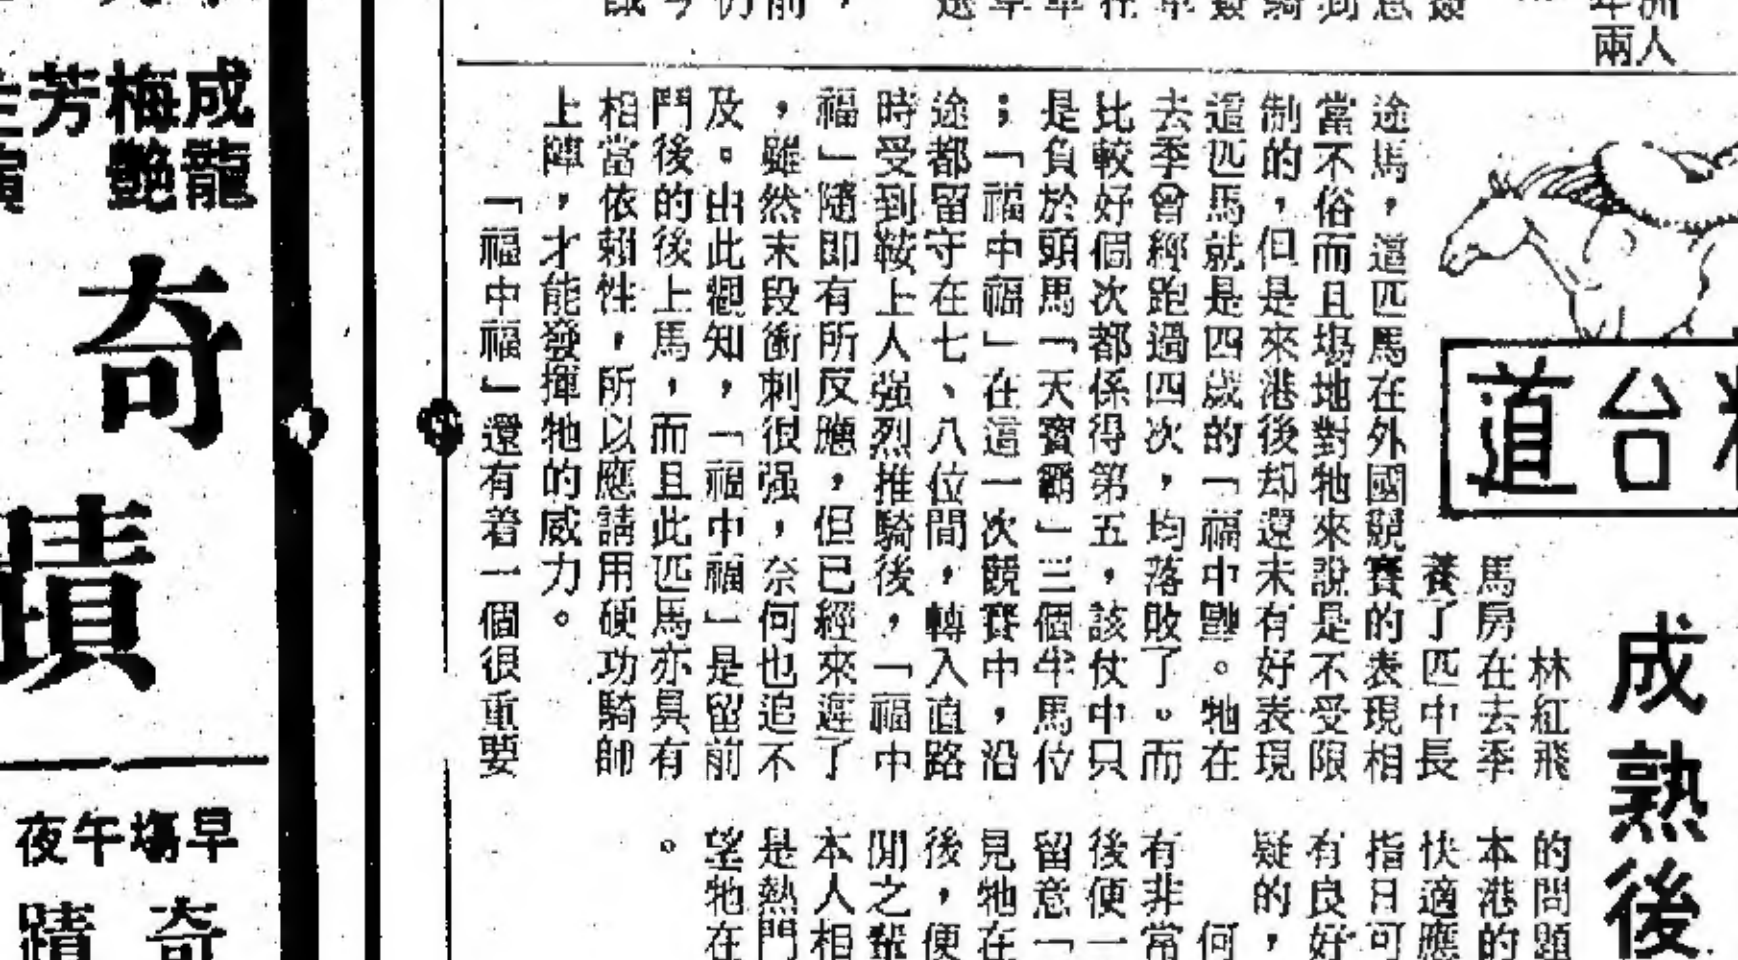 洲人
年兩
道台
成熟後
林紅飛
馬房在去季
養了匹中長
途馬，這匹馬在外國競賽的表現相
當不俗而且塲地對牠來說是不受限
制的，但是來港後却還未有好表現
這匹馬就是四歲的「福中福」。牠在
去季曾經跑過四次，均落敗了。而
比較好個次都係得第五，該仗中只
是負於頭馬「天寶霸」三個半馬位
；「福中福」在這一次競賽中，沿
途都留守在七、八位間，轉入直路
時受到鞍上人强烈推騎後，「福中
福」隨即有所反應，但已經來遲了
，雖然末段衝刺很强，奈何也追不
及。由此觀知，「福中福」是留前
鬥後的後上馬，而且此匹馬亦具有
相當依賴性，所以應請用硬功騎師
上陣，才能發揮牠的威力。
「福中福」還有着一個很重要
的問題
本港的
快適應
指日可
有良好
疑的，
何
有非常
後便一
留意「
見牠在
後，便
聞之
本人相
是熱門
望牠在
。
成龍
梅艷
芳
奇
蹟
早塲午夜
奇
蹟